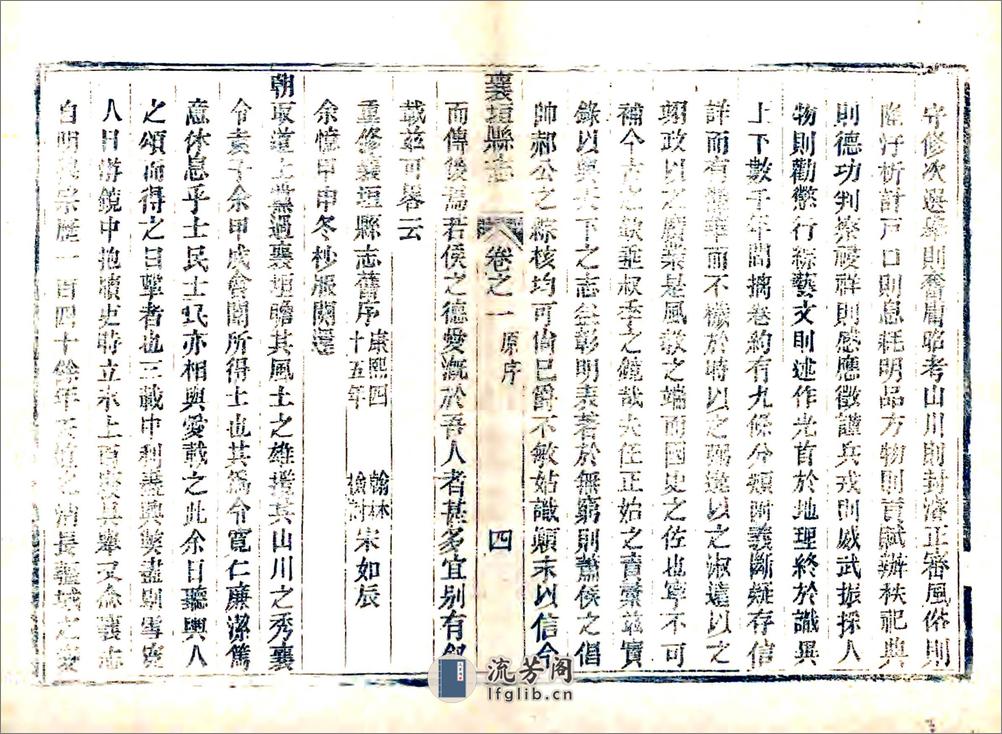 守修次選舉則奮庸昭考山川則封濬正審風俗則
隆汙析計戸口則息耗明品方物則言賦辦秩祀典
則德功判祭祲祥則感應徵謹兵戎則威武振採人
物則勸懲行綜藝文則述作光首於地理終於識異
上下數千年間摘卷約有九條分類附義斷疑存信
詳而有體華而不襍於時以之彌遠以之淑遠以之
翊政以之廣業是風教之端而國史之佐也寧不可
補今古之缺垂叔季之鏡哉夫任正始之責彙茲實
錄以與天下之志公彰明表著於無窮則蕭侯之倡
帥郝公之綜核均可尚巳爵不敏姑識顛末以信今
而傳後焉若侯之德愛溉於吾人者甚多宜别有
載茲可畧云
重修襄垣縣志舊序 康熙四十五年 翰林檢討 宋如辰
余憶甲申冬杪服闋還
朝取道上黨過襄垣瞻其風土之雄擅其山川之秀襄
令袁子余甲戌會闈所得士也其為令寬仁廉潔篤
意休息乎士民士民亦相與愛戴之此余日聽輿人
之頌而得之目擊者也三載中利盡興獘盡剔雪
人日游鏡中抱牘吏時立氷上百廢具舉又念襄志
自明 宗歷一百四十餘年 之消長疆域之
襄垣縣志 卷之一 原序 四
流芳阁
lfglib.cn